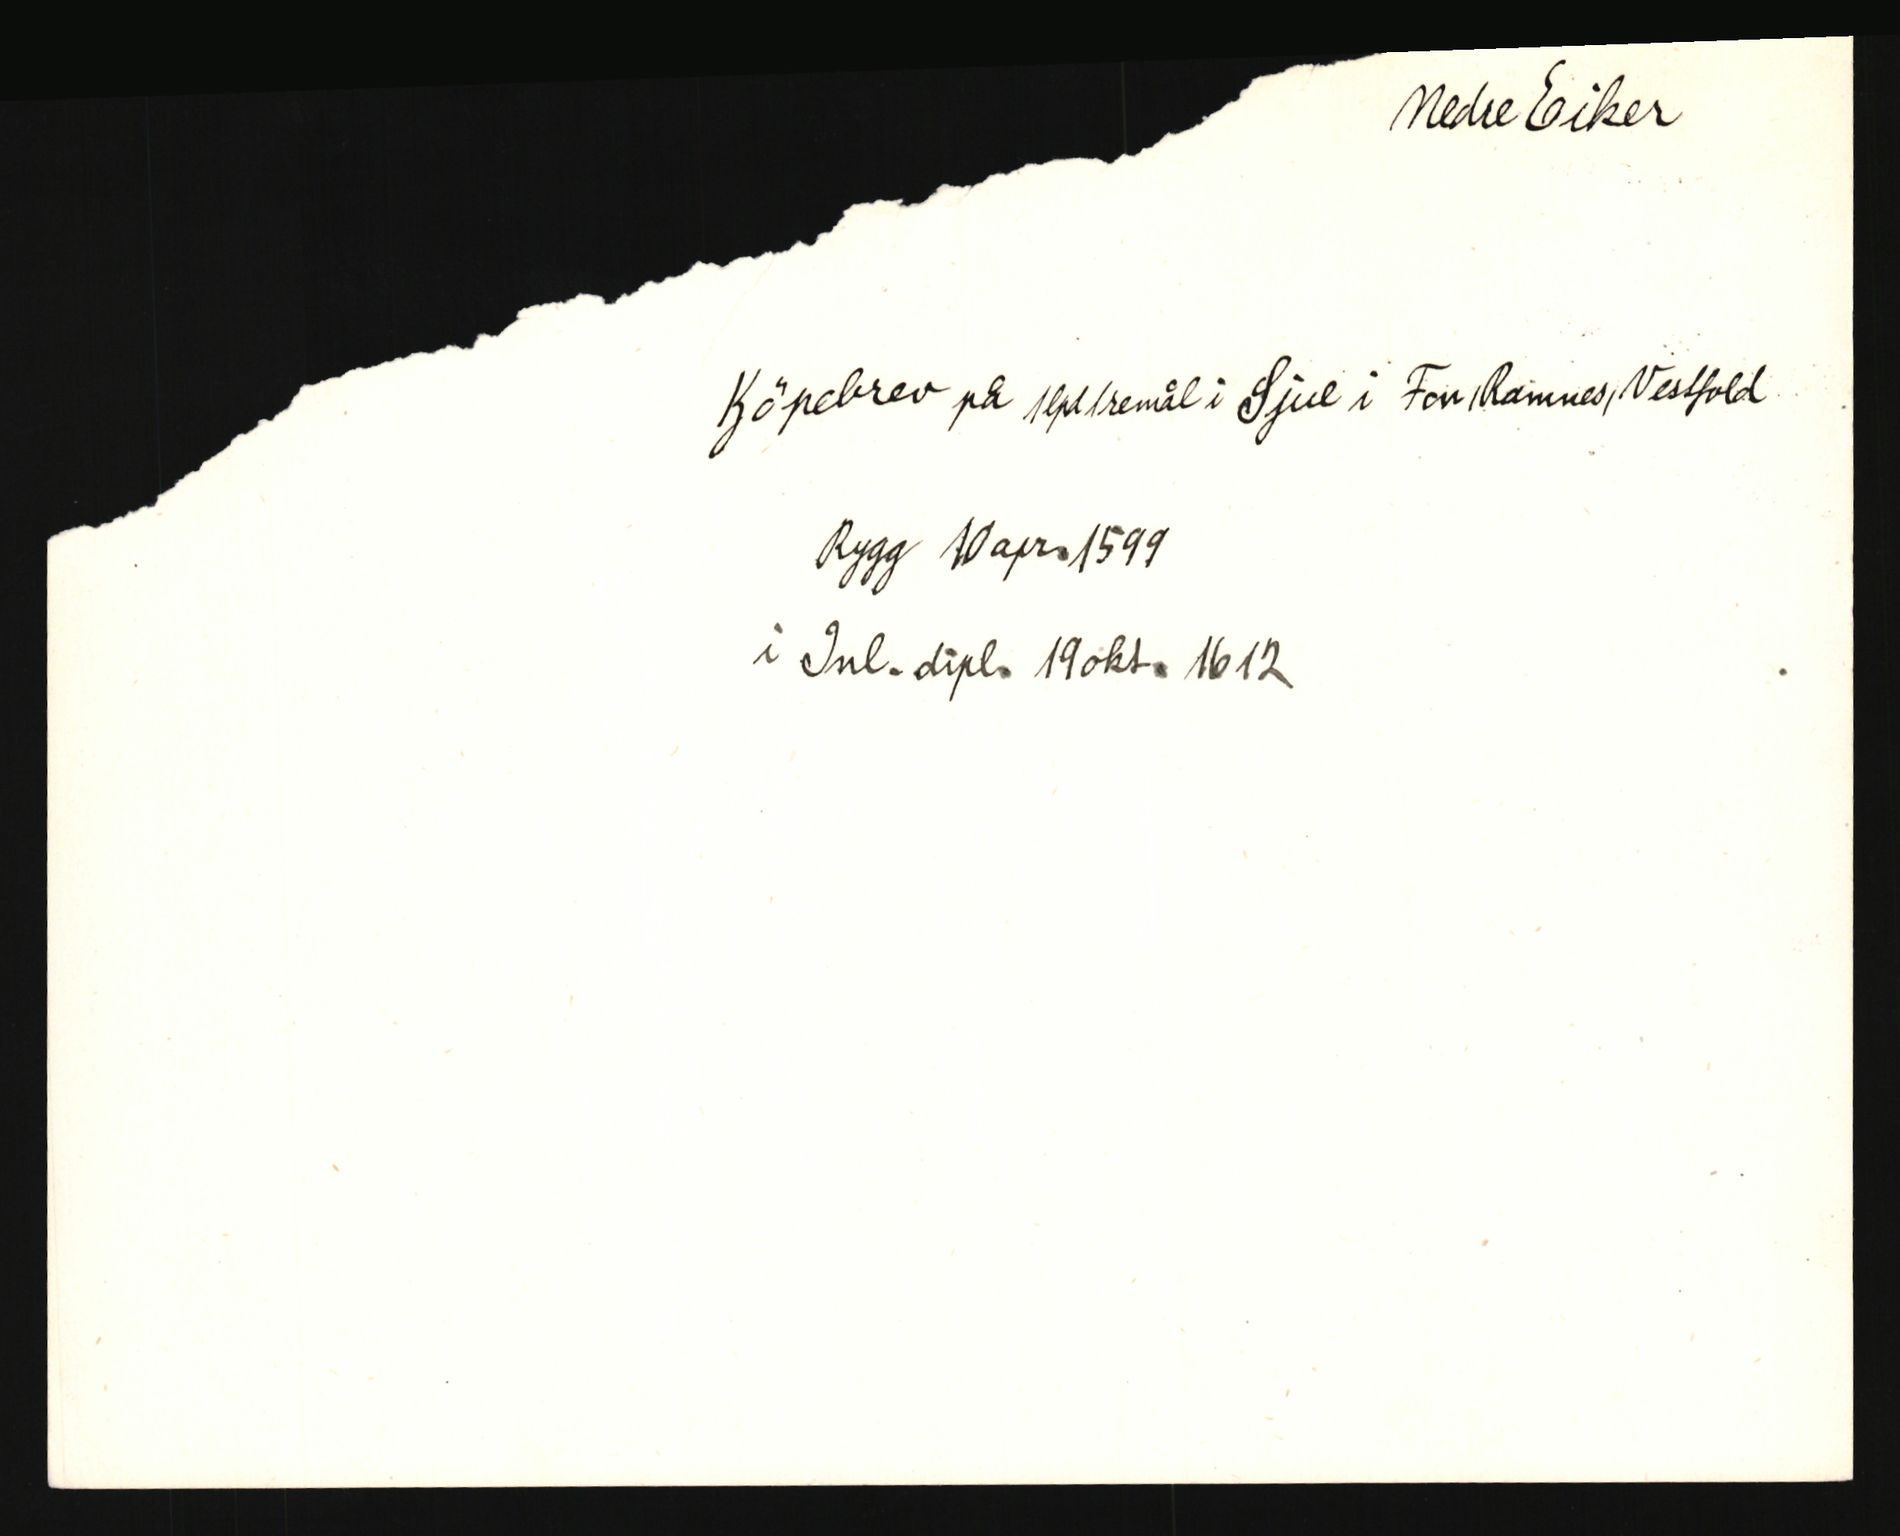 Nedre Eiker
Köpebrev på 1 lpd tremål i Sjue i Fon, Ramnes, Vestfold
Rygg 10 apr. 1599
i Inl. dipl. 19 okt. 1612